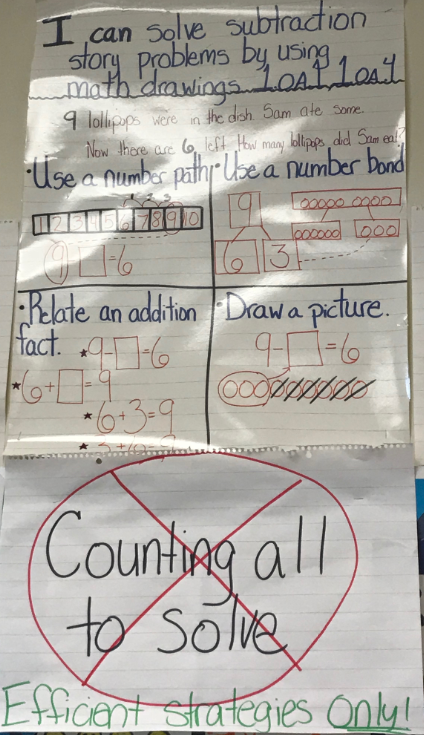 I can solve subtraction
story problems by using
math drawings. 1.OA.1, 1.OA.4
9 lollipops were in the dish. Sam ate some.
Now there are 6 left. How many lollipops did Sam eat?
·Use a number path
1 2 3 4 5 6 7 8 9 10
9 □=6
·Use a number bond
9
6 3
·Relate an addition
fact. *9-□=6
*6+□=9
*6+3=9
·Draw a picture.
9-□=6
Counting all
to solve
Efficient strategies Only!